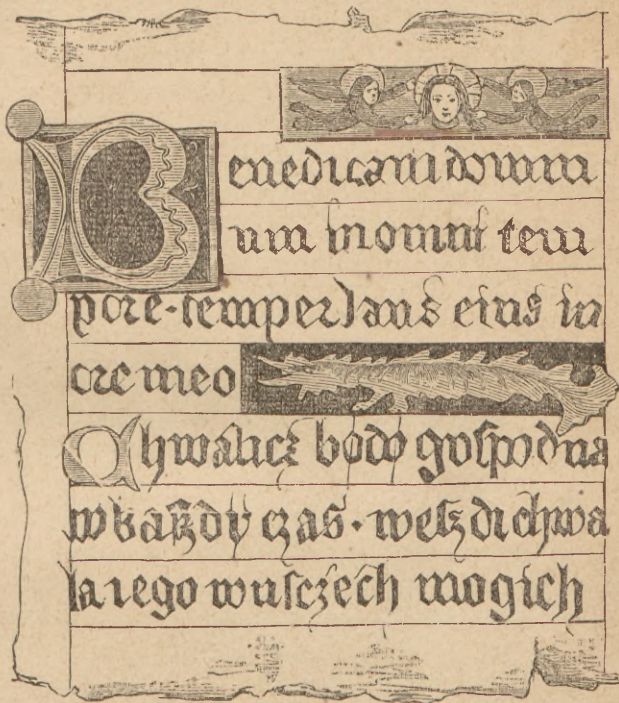 Benedicam domin
um in omni tem
pore·semper laus eius in
ore meo
Chwalicz bodo gospodna
wkaßdy czas·weszdi chwa
la iego wusczech mogich